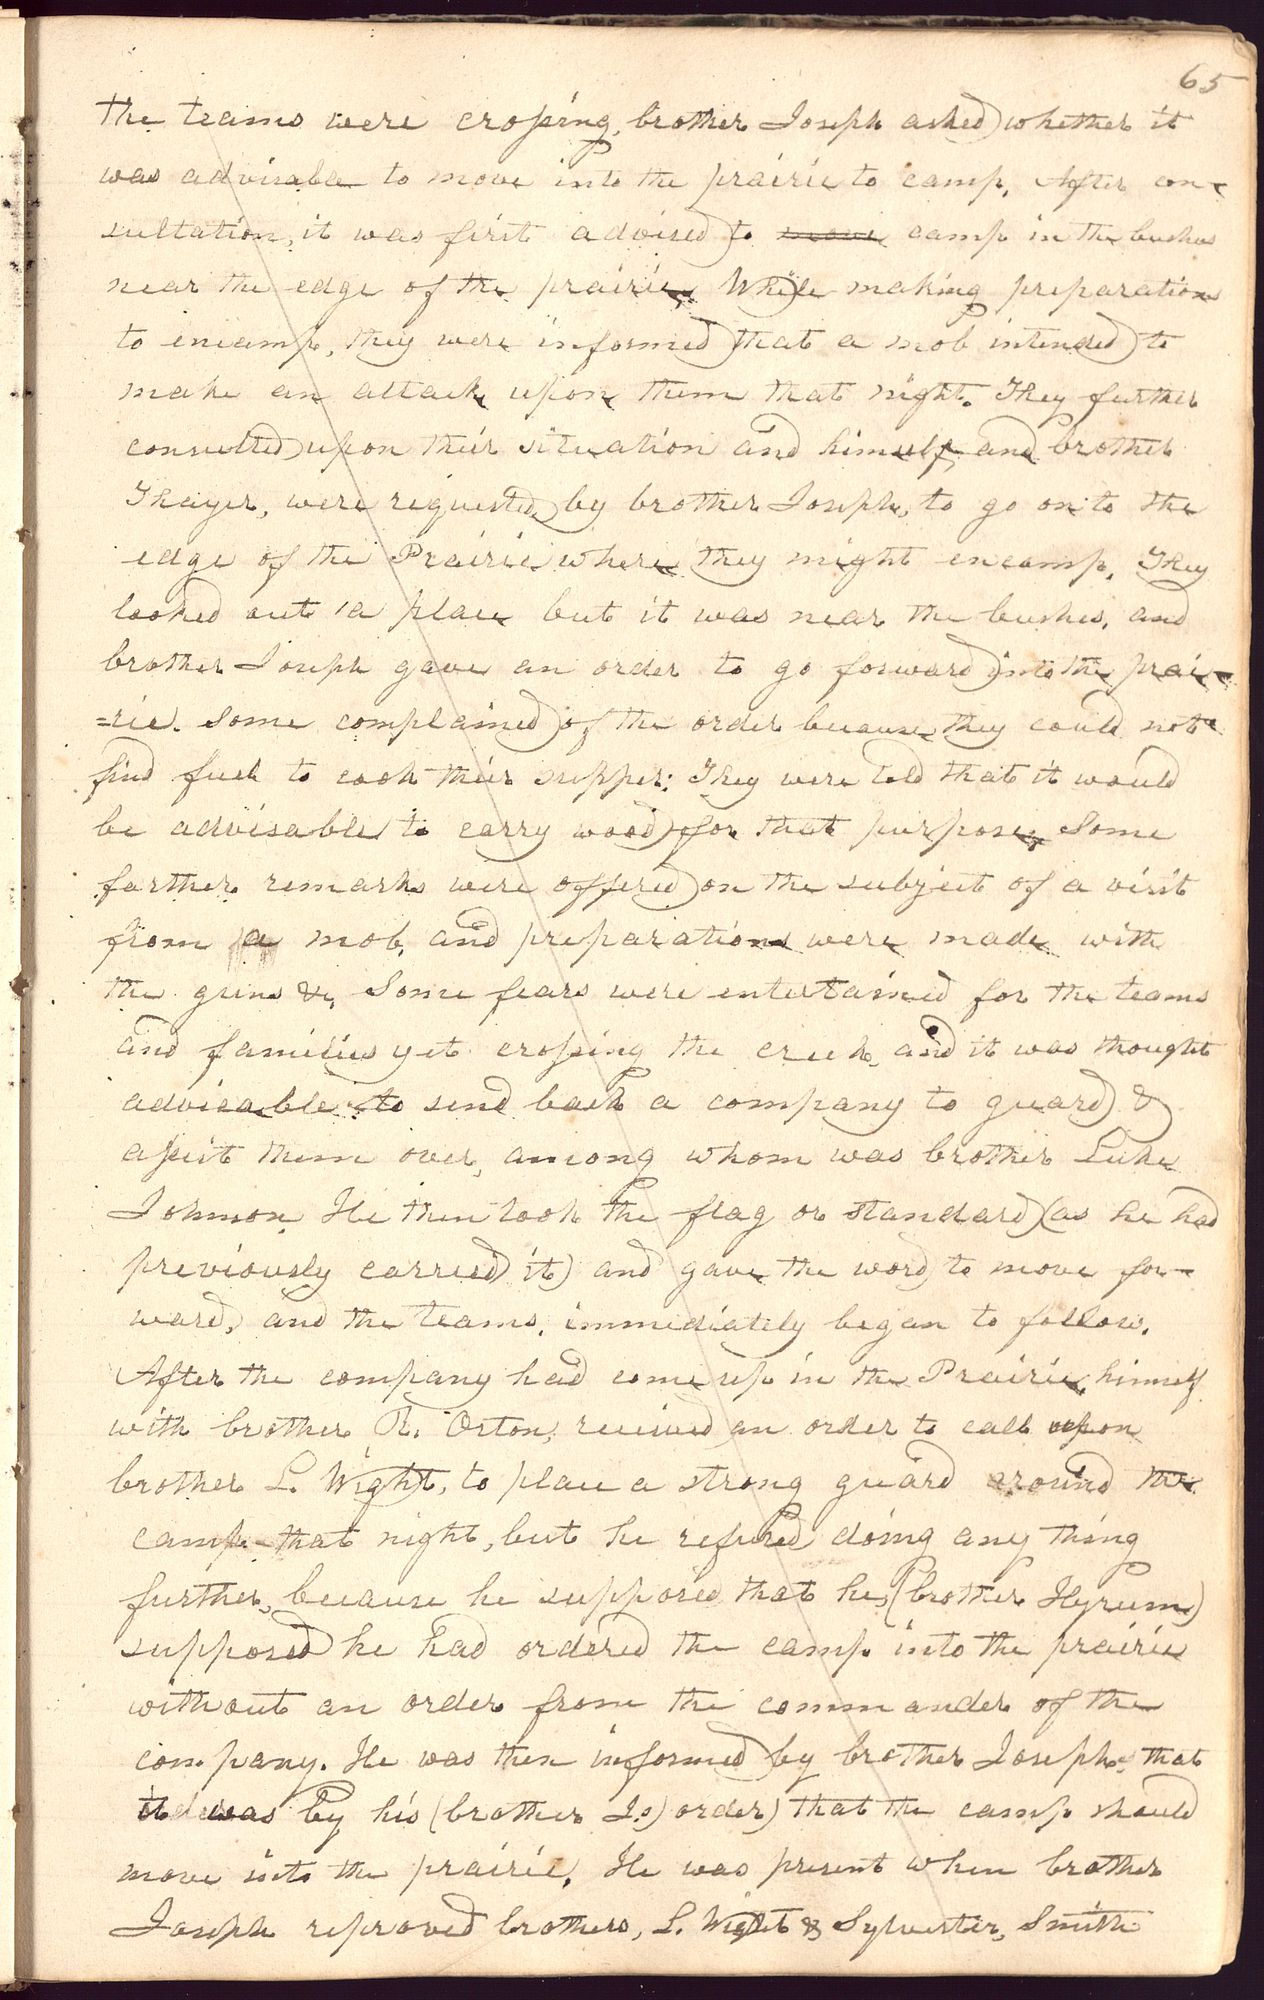 65
the teams were crossing, brother Joseph asked whether it
was advisable to move into the prairie to camp. After con-
sultation, it was first advised to move camp in the bushes
near the edge of the prairie. While making preparations
to encamp, they were informed that a mob intended to
make an attack upon them that night. They further
consulted upon their situation and himself and brother
Thayer, were requested, by brother Joseph, to go on to the
edge of the Prairie where they might encamp. They
looked out a place but it was near the bushes, and
brother Joseph gave an order to go forward into the prai-
=rie. Some complained of the order because they could not
find fuel to cook their supper: They were told that it would
be advisable to carry wood for that purpose, Some
farther remarks were offered on the subject of a visit
from a mob, and preparations were made with
the guns &c. Some fears were entertained for the teams
and families yet crossing the creek, and it was thought
advisable to send back a company to guard &
assist them over, among whom was brother Luke
Johnson. He then took the flag or standard (as he had
previously carried it) and gave the word to move for-
ward, and the teams, immediately began to follow.
After the company had come up in the Prairie, himself
with brother R. Orton, received an order to call upon
brother L. Wight, to place a strong guard around the
camp that night, but he refused doing any thing
further, because he supposed that he, (brother Hyrum)
supposed he had ordered the camp into the prairie
without an order from the commander of the
company. He was then informed by brother Joseph, that
it was by his (brother Js) order) that the camp should
move into the prairie. He was present when brother
Joseph reproved brothers, L. Wight & Sylvester, Smith